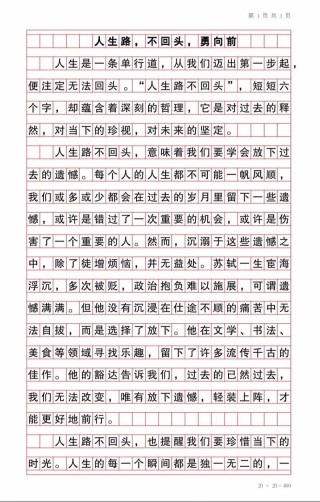 第 1 页 共 3 页
人生路，不回头，勇向前
人生是一条单行道，从我们迈出第一步起，
便注定无法回头。“人生路不回头”，短短六
个字，却蕴含着深刻的哲理，它是对过去的释
然，对当下的珍视，对未来的坚定。
人生路不回头，意味着我们要学会放下过
去的遗憾。每个人的人生都不可能一帆风顺，
我们或多或少都会在过去的岁月里留下一些遗
憾，或许是错过了一次重要的机会，或许是伤
害了一个重要的人。然而，沉溺于这些遗憾之
中，除了徒增烦恼，并无益处。苏轼一生宦海
浮沉，多次被贬，政治抱负难以施展，可谓遗
憾满满。但他没有沉浸在仕途不顺的痛苦中无
法自拔，而是选择了放下。他在文学、书法、
美食等领域寻找乐趣，留下了许多流传千古的
佳作。他的豁达告诉我们，过去的已然过去，
我们无法改变，唯有放下遗憾，轻装上阵，才
能更好地前行。
人生路不回头，也提醒我们要珍惜当下的
时光。人生的每一个瞬间都是独一无二的，一
20 × 20=400